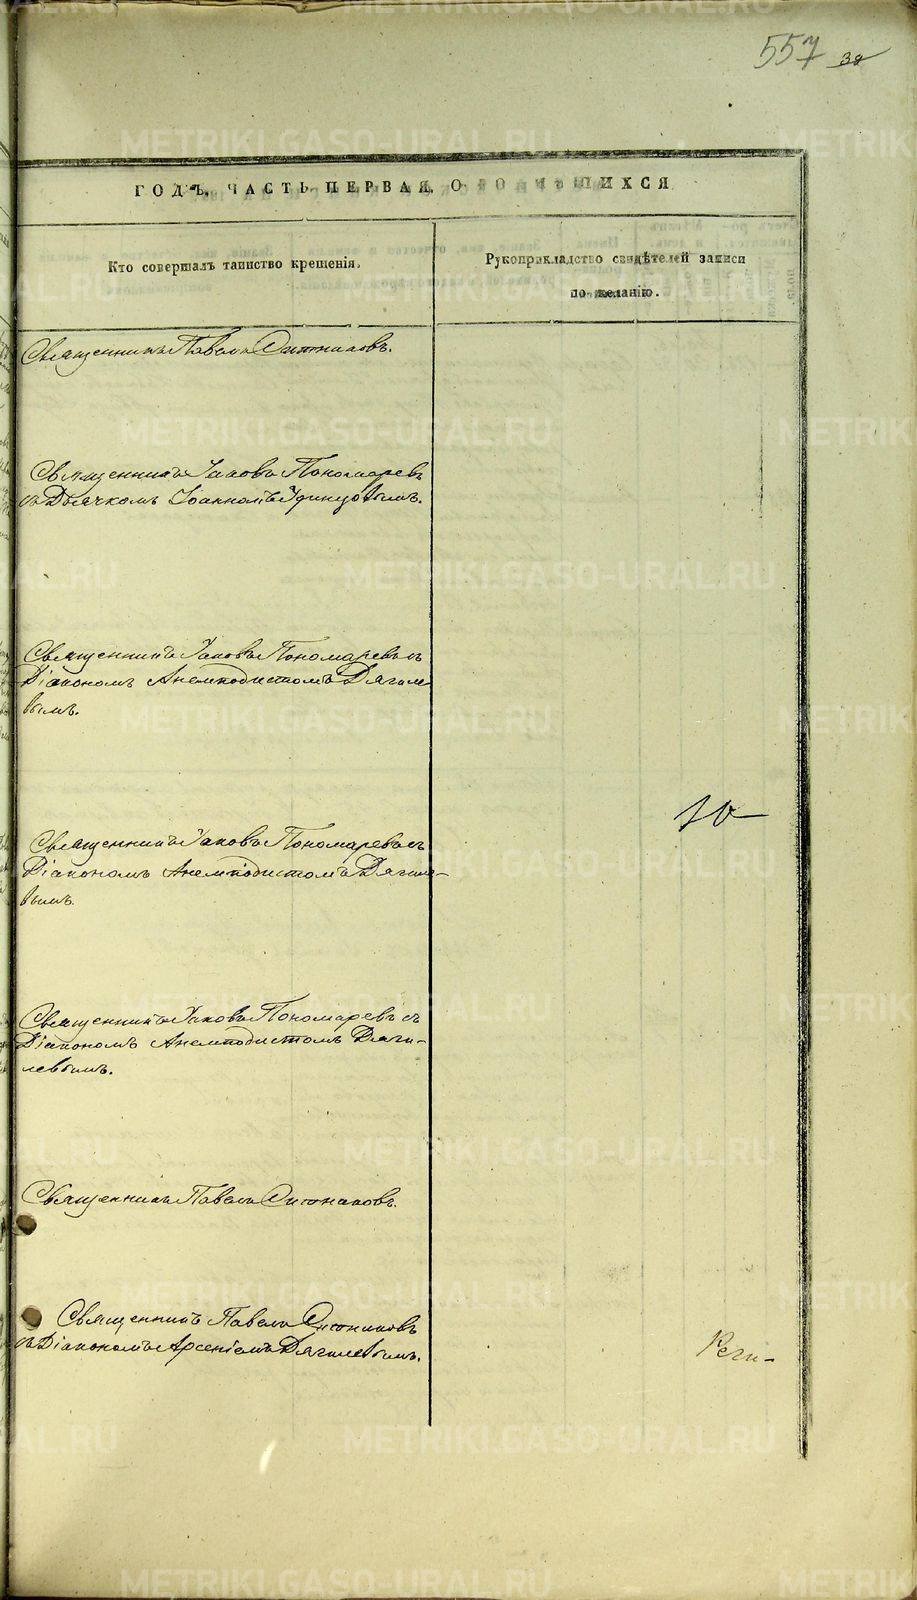 557 38
ГОДЪ, ЧАСТЬ ПЕРВАЯ, О РОДИВШИХСЯ
Кто совершалъ таинство крещенія.
Рукоприкладство свидѣтелей записи
по желанію.
Священникъ Павелъ Ситниковъ.
Священникъ Іаковъ Пономаревъ
съ Дьячкомъ Іоанномъ Удинцовымъ.
Священникъ Іаковъ Пономаревъ съ
Діакономъ Анемподистомъ Дягиле-
вымъ.
10
Священникъ Іаковъ Пономаревъ съ
Діакономъ Анемподистомъ Дягиле-
вымъ.
Священникъ Іаковъ Пономаревъ съ
Діакономъ Анемподистомъ Дяги-
левымъ.
Священникъ Павелъ Ситниковъ.
Священникъ Павелъ Ситниковъ
съ Діакономъ Арсеніемъ Дягилевымъ.
Реги-
METRIKI.GASO-URAL.RU